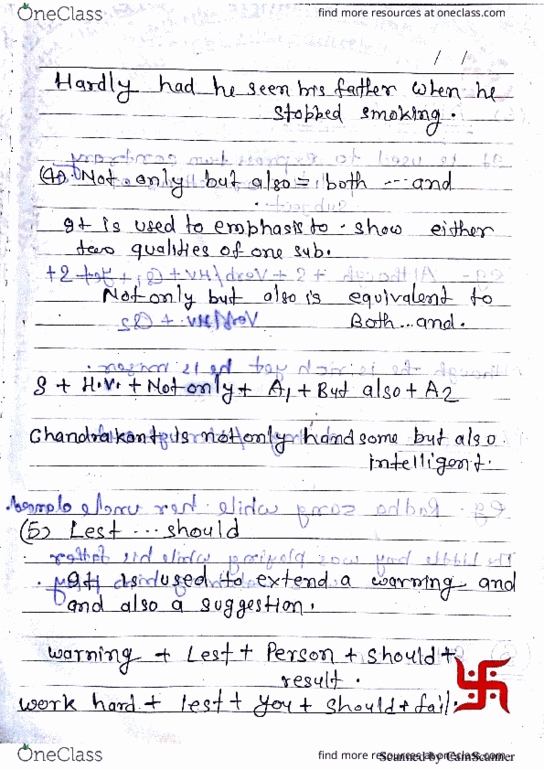 OneClass
find more resources at oneclass.com
/ /
Hardly had he seen his father when he
stopped smoking.
(4) Not only but also = both ... and
It is used to emphasis to show either
two qualities of one sub.
Not only but also is equivalent to
Both ... and.
S + H.V. + Not only + A1 + But also + A2
Chandrakant is not only handsome but also
intelligent.
(5) Lest ... should
It is used to extend a warning and
and also a suggestion.
warning + Lest + Person + should +
result.
work hard + lest + you + should + fail.
OneClass
find more resources at oneclass.com
Scanned by CamScanner